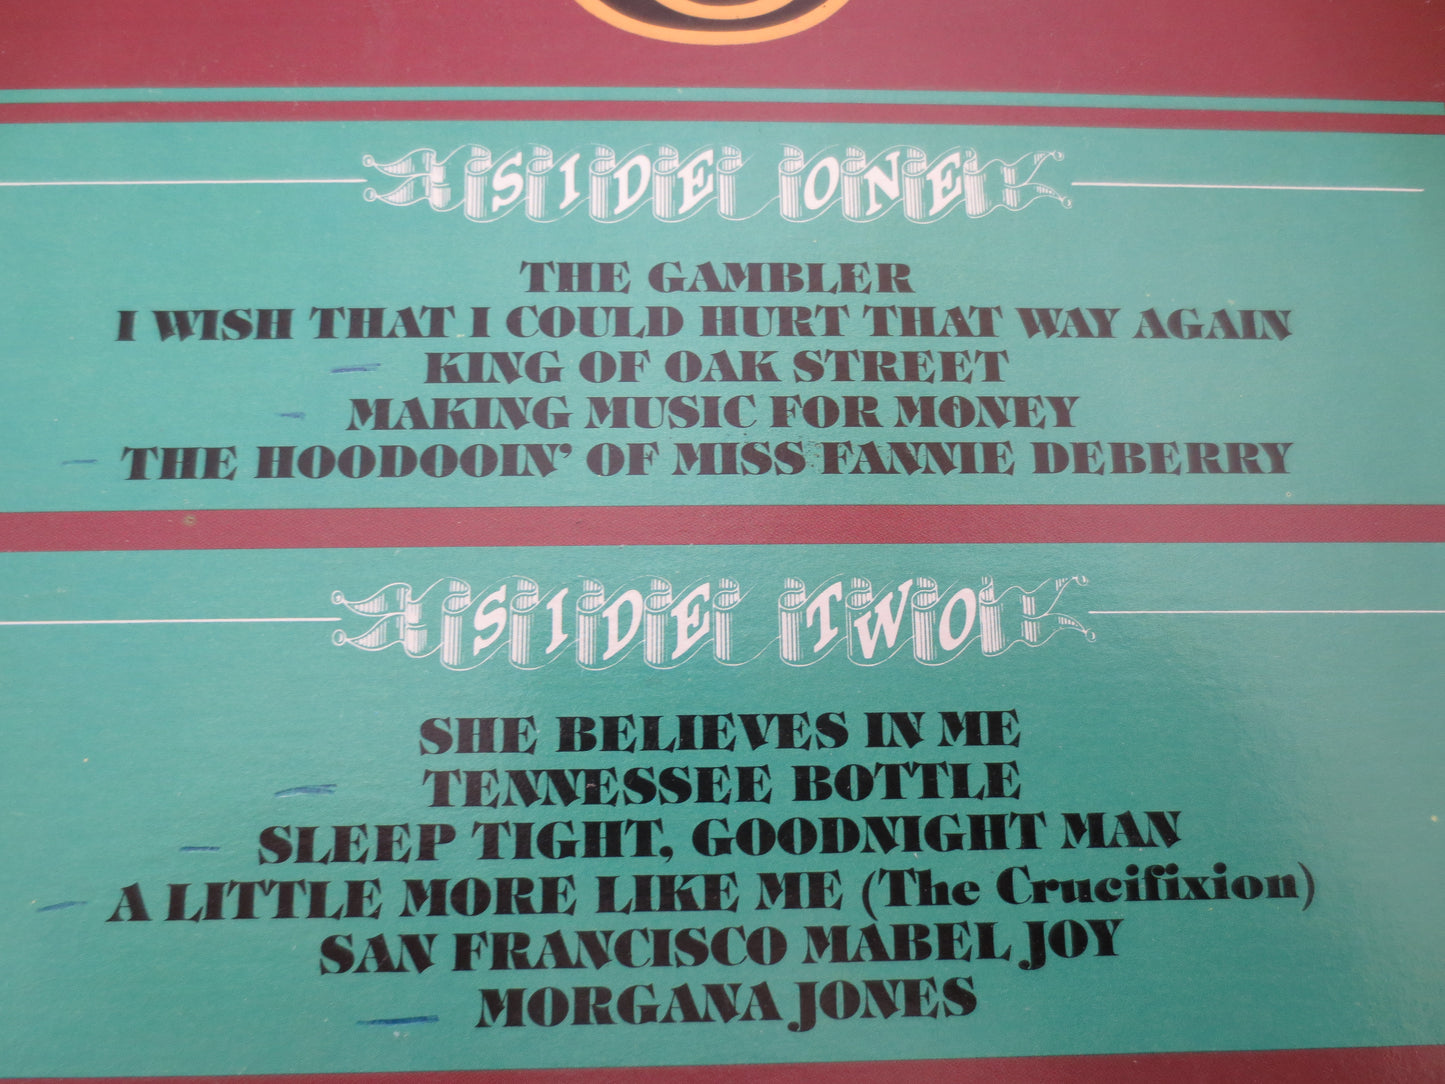 SIDE ONE
THE GAMBLER
I WISH THAT I COULD HURT THAT WAY AGAIN
KING OF OAK STREET
MAKING MUSIC FOR MONEY
THE HOODOOIN' OF MISS FANNIE DEBERRY
SIDE TWO
SHE BELIEVES IN ME
TENNESSEE BOTTLE
SLEEP TIGHT, GOODNIGHT MAN
A LITTLE MORE LIKE ME (The Crucifixion)
SAN FRANCISCO MABEL JOY
MORGANA JONES